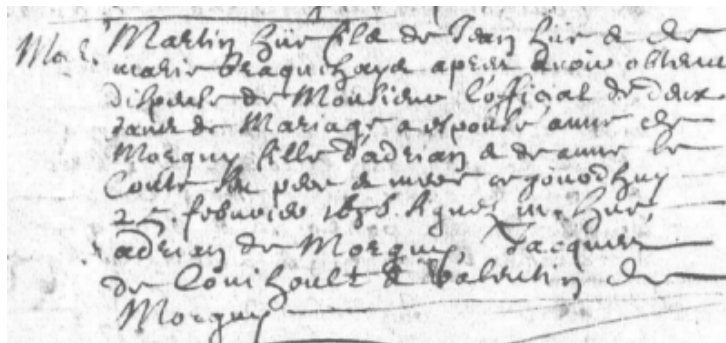 Mar. Martin Hüe fils de Jean Hüe & de
marie braquehaye apres avoir obtenu
dispense de Monsieur l'official de deux
bans de Mariage a espousé anne de
Morguy fille d'adrian & de anne le
Conte ses pere & mere ce jourdhuy
25. febvrier presens m. Hüe,
adrian de Morguy Jacques
de Couihoult & Valentin de
Morguy